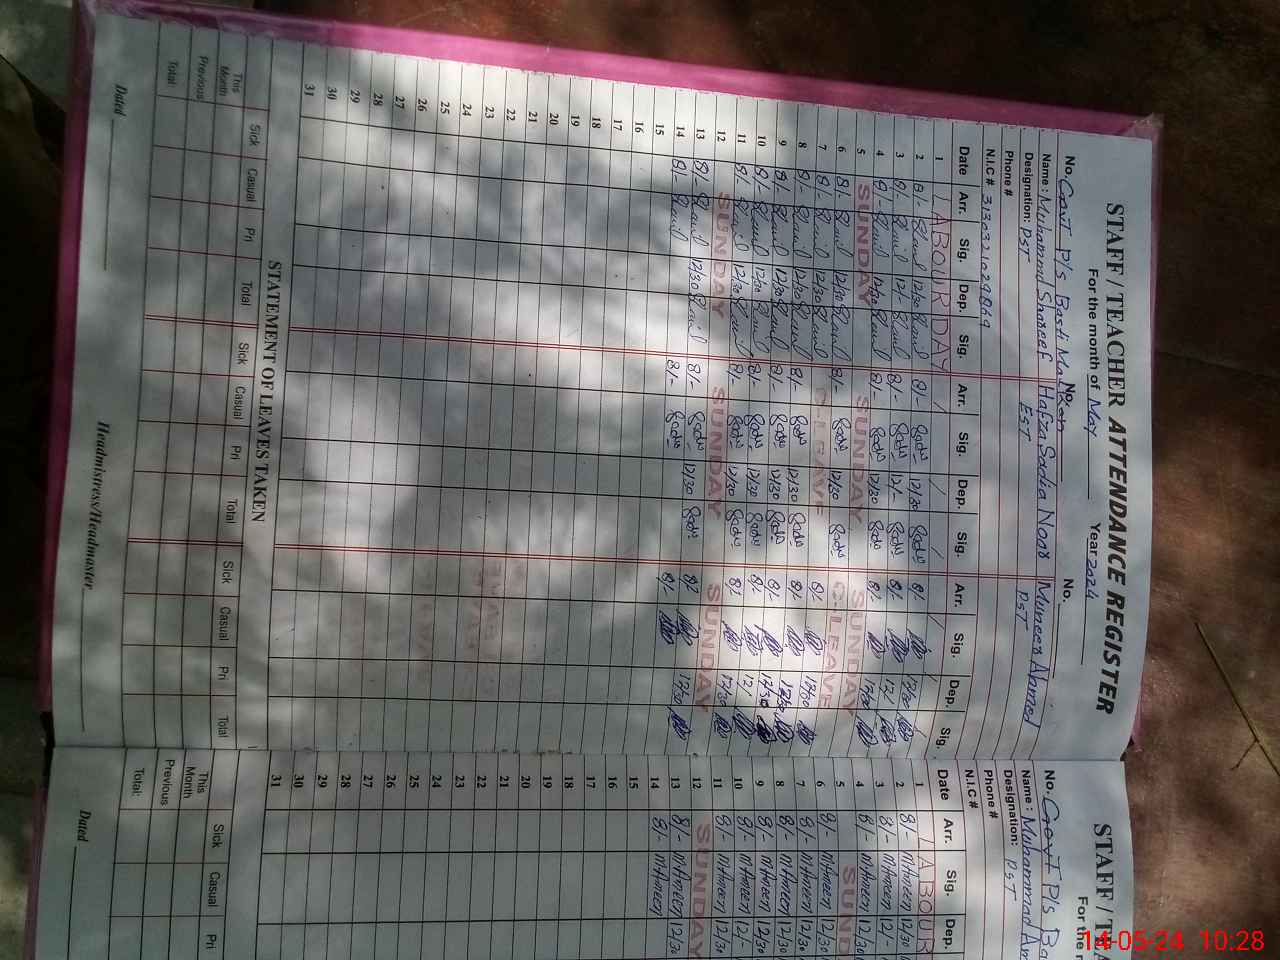 STAFF / TEACHER ATTENDANCE REGISTER
For the month of May Year 2024
No. Govt P/s Basti Malkan No. No.
Name: Muhammad Shareef Hafiza Sadia Noor Muneer Ahmed
Designation: PST EST PST
Phone #
N.I.C # 3130321029869
Date Arr. Sig. Dep. Sig. Arr. Sig. Dep. Sig. Arr. Sig. Dep. Sig.
1 LABOUR DAY
2 8/- 12/30 8/- 12/30 8/- 12/30
3 8/- 12/- 8/- 12/- 8/- 12/
4 8/- 12/30 8/- 12/30 8/- 12/30
5 SUNDAY SUNDAY SUNDAY
6 8/- 12/30 8/- 12/30 C-LEAVE
7 8/- 12/30 C-LEAVE 8/- 12/30
8 8/- 12/30 8/- 12/30 8/- 12/30
9 8/- 12/30 8/- 12/30 8/- 12/30
10 8/- 12/30 8/- 12/30 8/- 12/
11 8/- 12/30 8/- 12/30 8/- 12/30
12 SUNDAY SUNDAY SUNDAY
13 8/- 12/30 8/- 12/30 8/- 12/30
14 8/- 8/- 8/-
15
16
17
18
19
20
21
22
23
24
25
26
27
28
29
30
31
STATEMENT OF LEAVES TAKEN
Sick Casual Pri Total Sick Casual Pri Total Sick Casual Pri Total
This Month
Previous
Total:
Dated Headmistress/Headmaster
STAFF / TEA
For the m
No. Govt P/s Ba
Name: Muhammad Am
Designation: PST
Phone #
N.I.C #
Date Arr. Sig. Dep.
1 LABOUR
2 8/- M.Ameen 12/30
3 8/- M.Ameen 12/-
4 8/- M.Ameen 12/30
5 SUND
6 8/- M.Ameen 12/30
7 8/- M.Ameen 12/30
8 8/- M.Ameen 12/30
9 8/- M.Ameen 12/30
10 8/- M.Ameen 12/-
11 8/- M.Ameen 12/30
12 SUNDAY
13 8/- M.Ameen 12/30
14 8/- M.Ameen
15
16
17
18
19
20
21
22
23
24
25
26
27
28
29
30
31
Sick Casual Pri
This Month
Previous
Total:
Dated
14-05-24 10:28